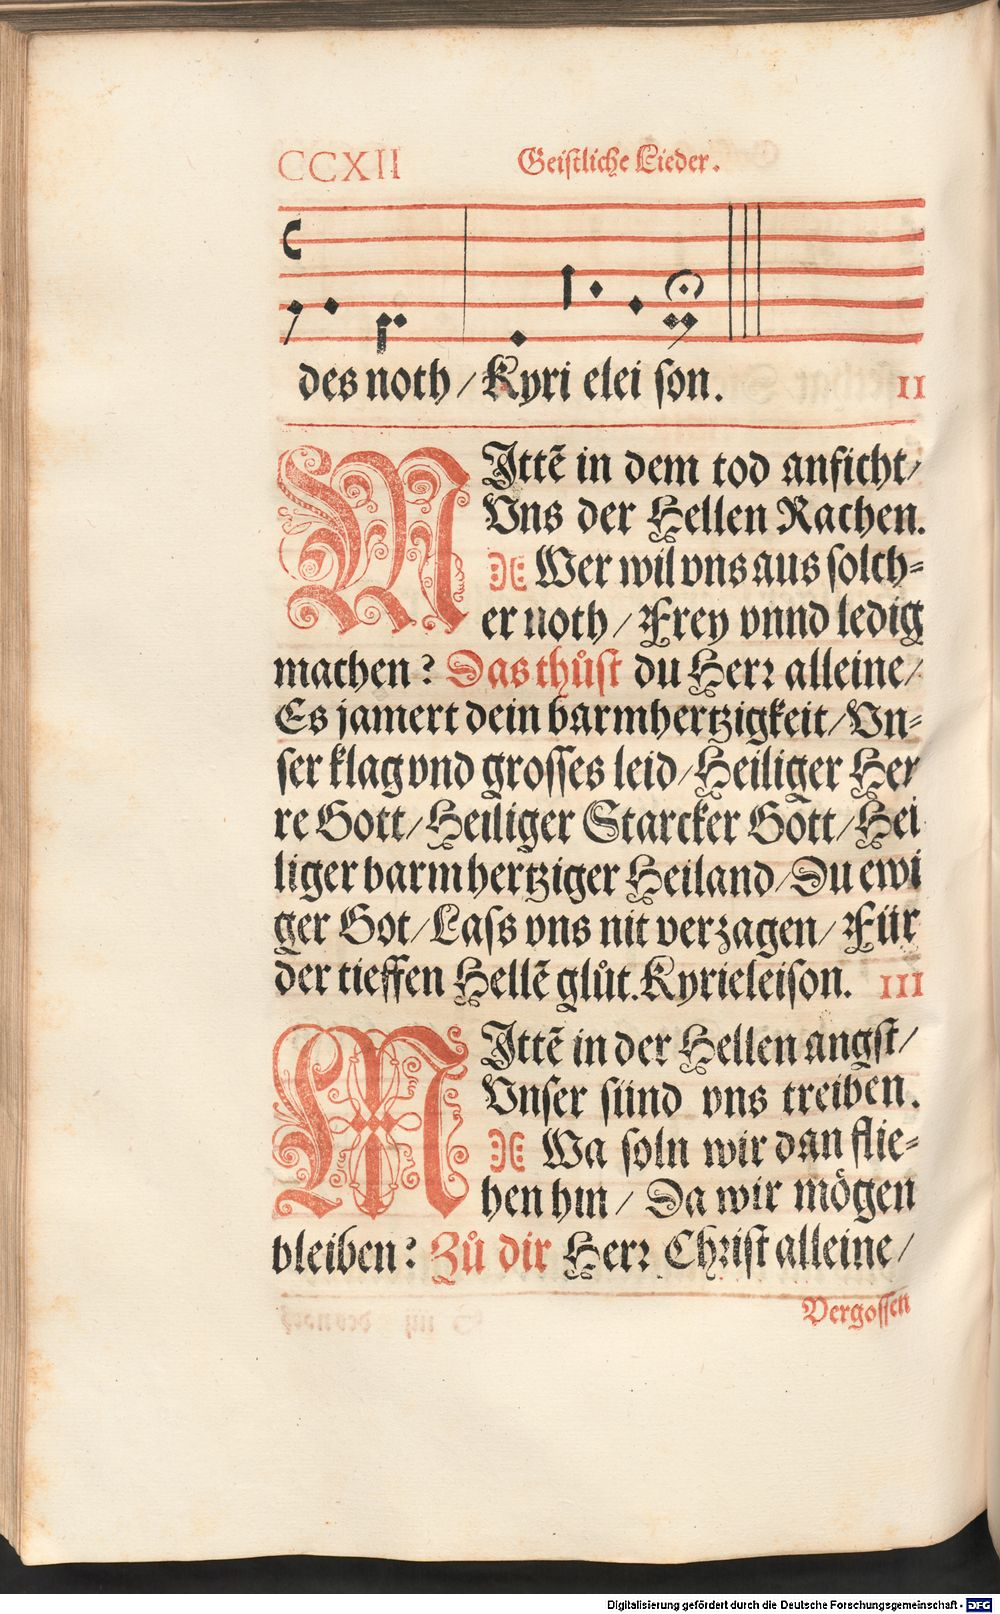 CCXII Geistliche Lieder.
des noth / Kyri elei son. II
MIttẽ in dem tod anficht/
Vns der Hellen Rachen.
Wer wil vns aus solch=
er noth / Frey vnnd ledig
machen? Das thůst du Herr alleine/
Es jamert dein barmhertzigkeit/Vn=
ser klag vnd grosses leid/Heiliger Her
re Gott/Heiliger Starcker Gott/Hei
liger barmhertziger Heiland/Du ewi
ger Got/Lass vns nit verzagen/Für
der tieffen Hellẽ glůt.Kyrieleison. III
MIttẽ in der Hellen angst/
Vnser sünd vns treiben.
Wa soln wir dan flie=
hen hin / Da wir mögen
bleiben? Zů dir Herr Christ alleine/
Vergossen
Digitalisierung gefördert durch die Deutsche Forschungsgemeinschaft - DFG